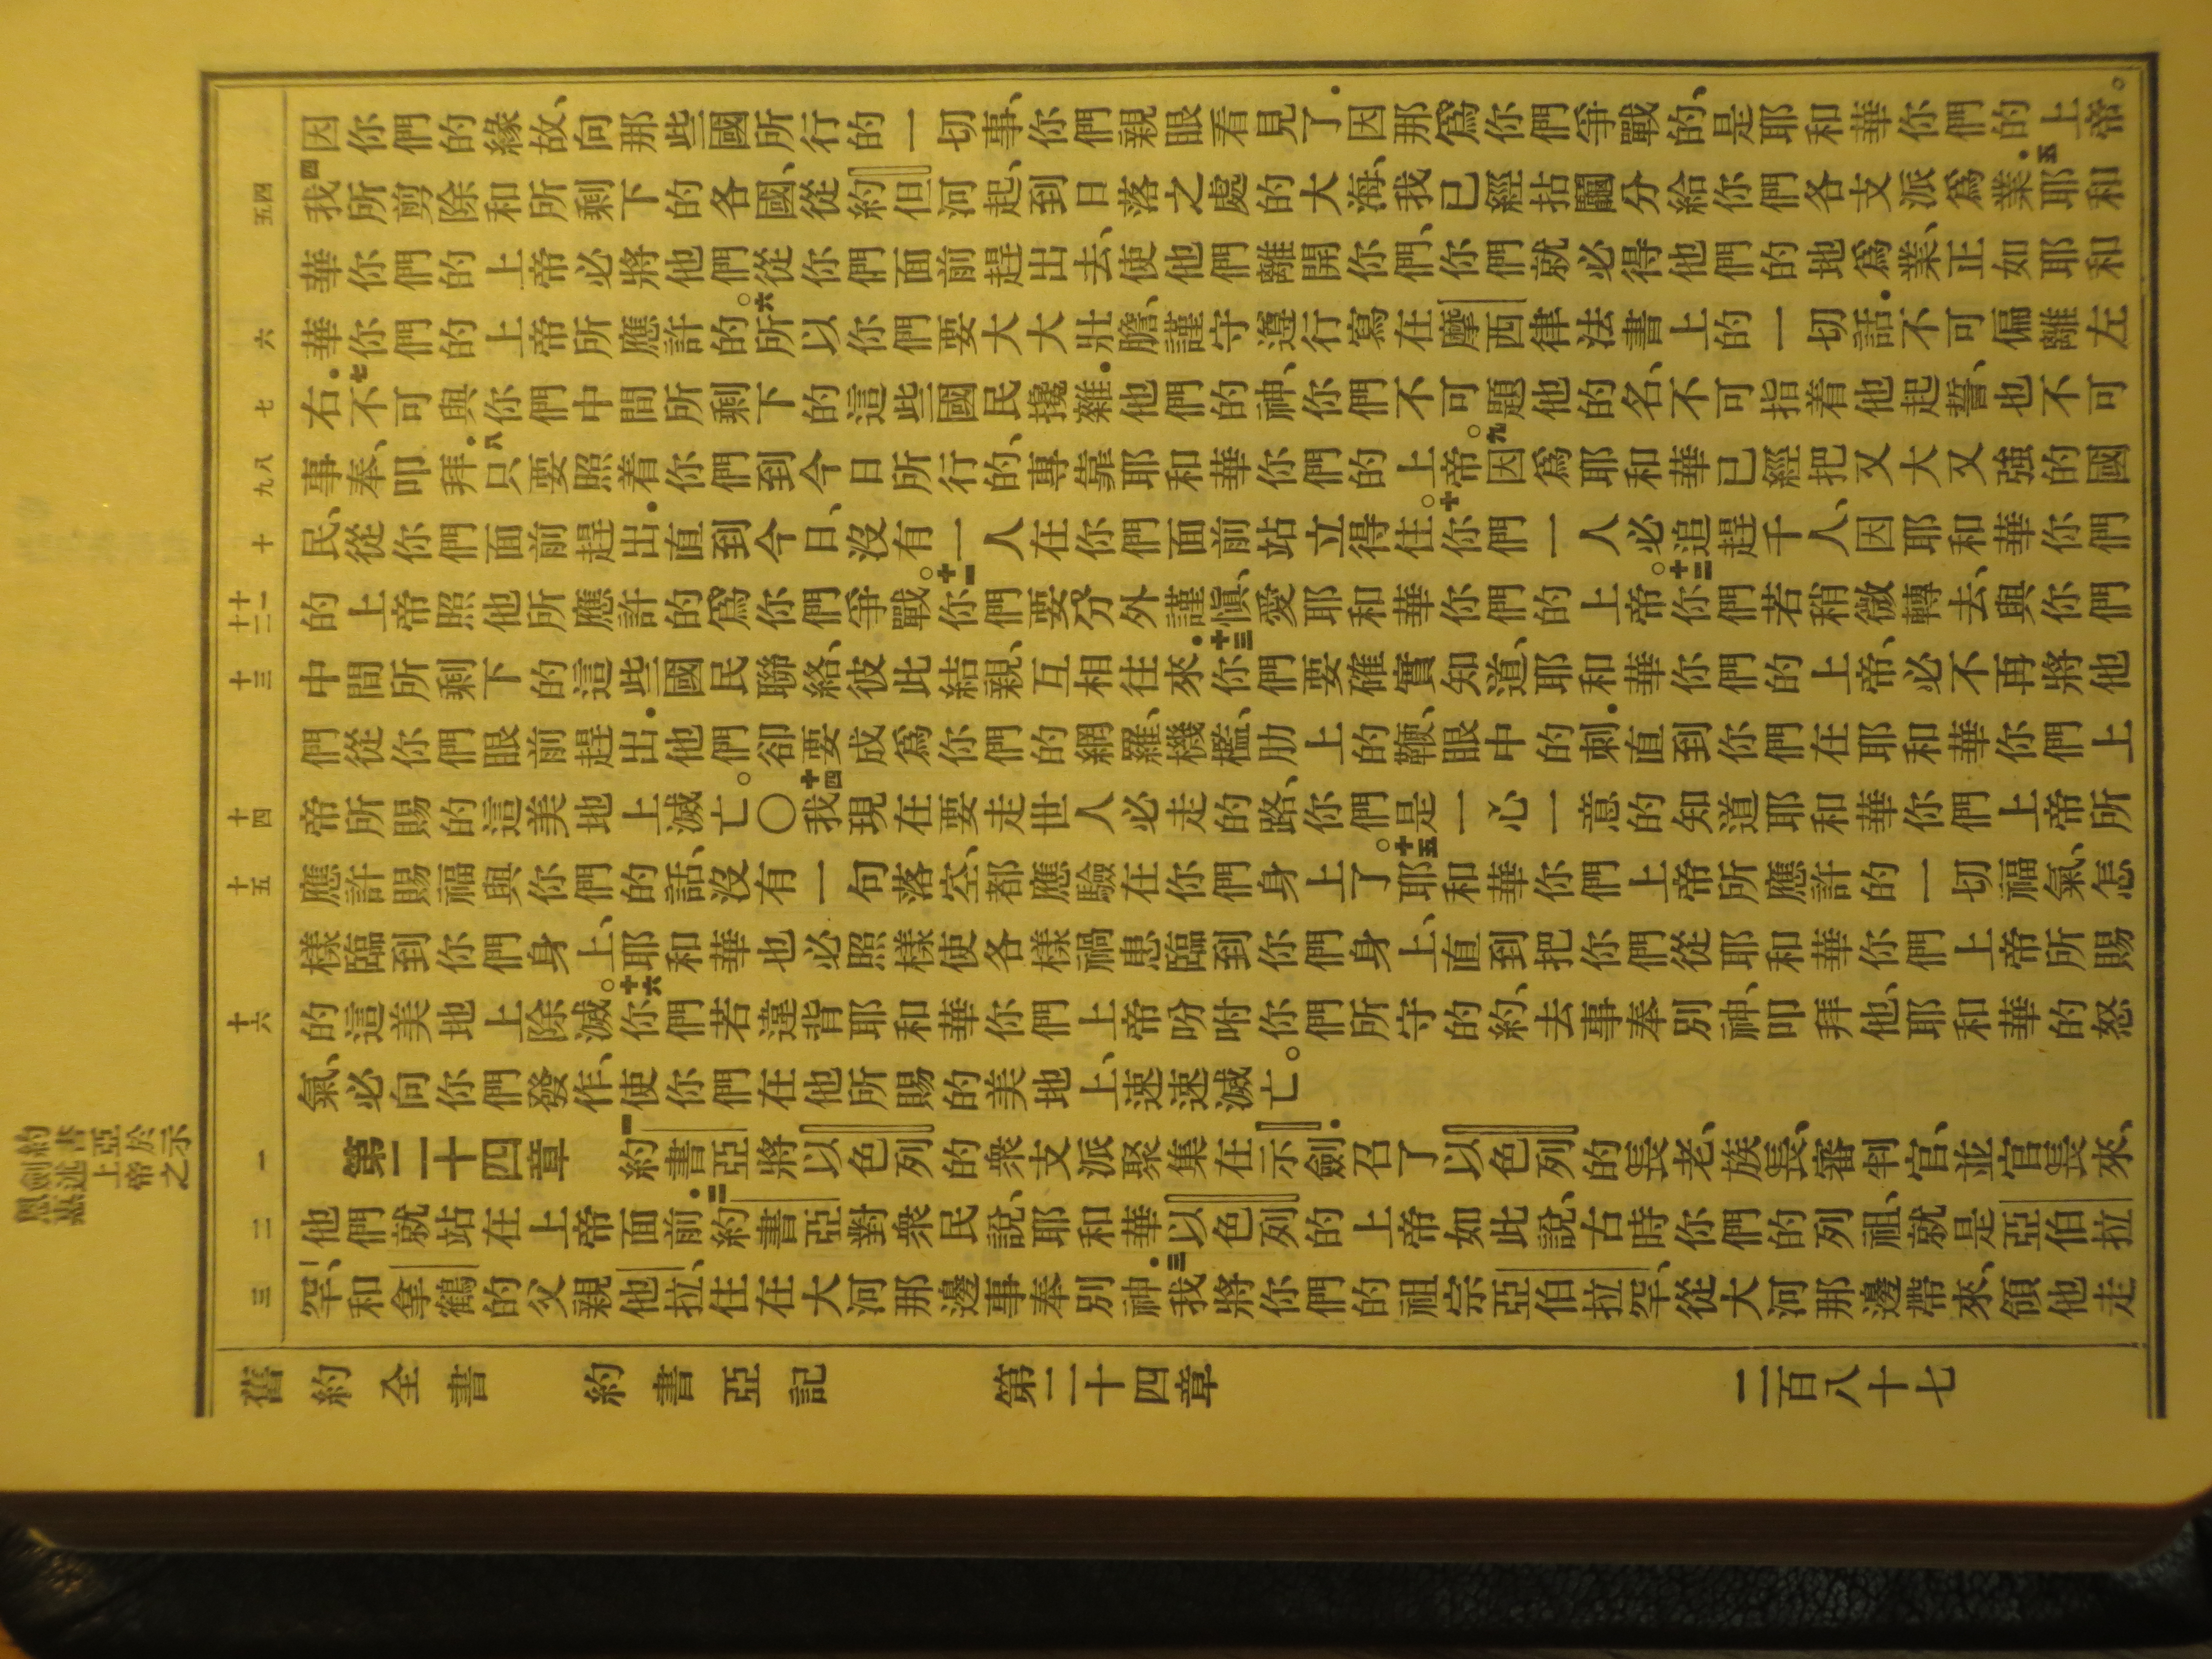 因你們的緣故、向那些國所行的一切事、你們親眼看見了．因那爲你們爭戰的、是耶和華你們的上帝。
四我所剪除和所剩下的各國、從約但河起、到日落之處的大海、我已經拈鬮分給你們各支派爲業．五耶和
華你們的上帝必將他們從你們面前趕出去、使他們離開你們、你們就必得他們的地爲業、正如耶和
華你們的上帝所應許的。六所以你們要大大壯膽、謹守遵行寫在摩西律法書上的一切話．不可偏離左
右．七不可與你們中間所剩下的這些國民攙雜．他們的神、你們不可題他的名、不可指着他起誓、也不可
事奉、叩拜．八只要照着你們到今日所行的、專靠耶和華你們的上帝。九因爲耶和華已經把又大又強的國
民、從你們面前趕出．直到今日、沒有一人在你們面前站立得住。十你們一人必追趕千人、因耶和華你們
的上帝照他所應許的爲你們爭戰。十一你們要分外謹愼、愛耶和華你們的上帝。十二你們若稍微轉去、與你們
中間所剩下的這些國民聯絡、彼此結親、互相往來．十三你們要確實知道、耶和華你們的上帝、必不再將他
們從你們眼前趕出．他們卻要成爲你們的網羅、機檻、肋上的鞭、眼中的刺．直到你們在耶和華你們上
帝所賜的這美地上滅亡。〇十四我現在要走世人必走的路、你們是一心一意的知道耶和華你們上帝所
應許賜福與你們的話、沒有一句落空、都應驗在你們身上了。十五耶和華你們上帝所應許的一切福氣、怎
樣臨到你們身上、耶和華也必照樣使各樣禍患臨到你們身上、直到把你們從耶和華你們上帝所賜
的這美地上除滅。十六你們若違背耶和華你們上帝吩咐你們所守的約、去事奉別神、叩拜他、耶和華的怒
氣、必向你們發作、使你們在他所賜的美地上、速速滅亡。
第二十四章　一約書亞將以色列的衆支派聚集在示劍．召了以色列的長老、族長、審判官、並官長來、
他們就站在上帝面前．二約書亞對衆民說、耶和華以色列的上帝如此說、古時你們的列祖、就是亞伯拉
罕、和拿鶴的父親他拉、住在大河那邊事奉別神．三我將你們的祖宗亞伯拉罕、從大河那邊帶來、領他走
四五
六
七
八九
十
十一十二
十三
十四
十五
十六
一
二
三
約書亞於示
劍述上帝之
恩慈
舊約全書　約書亞記　第二十四章　二百八十七